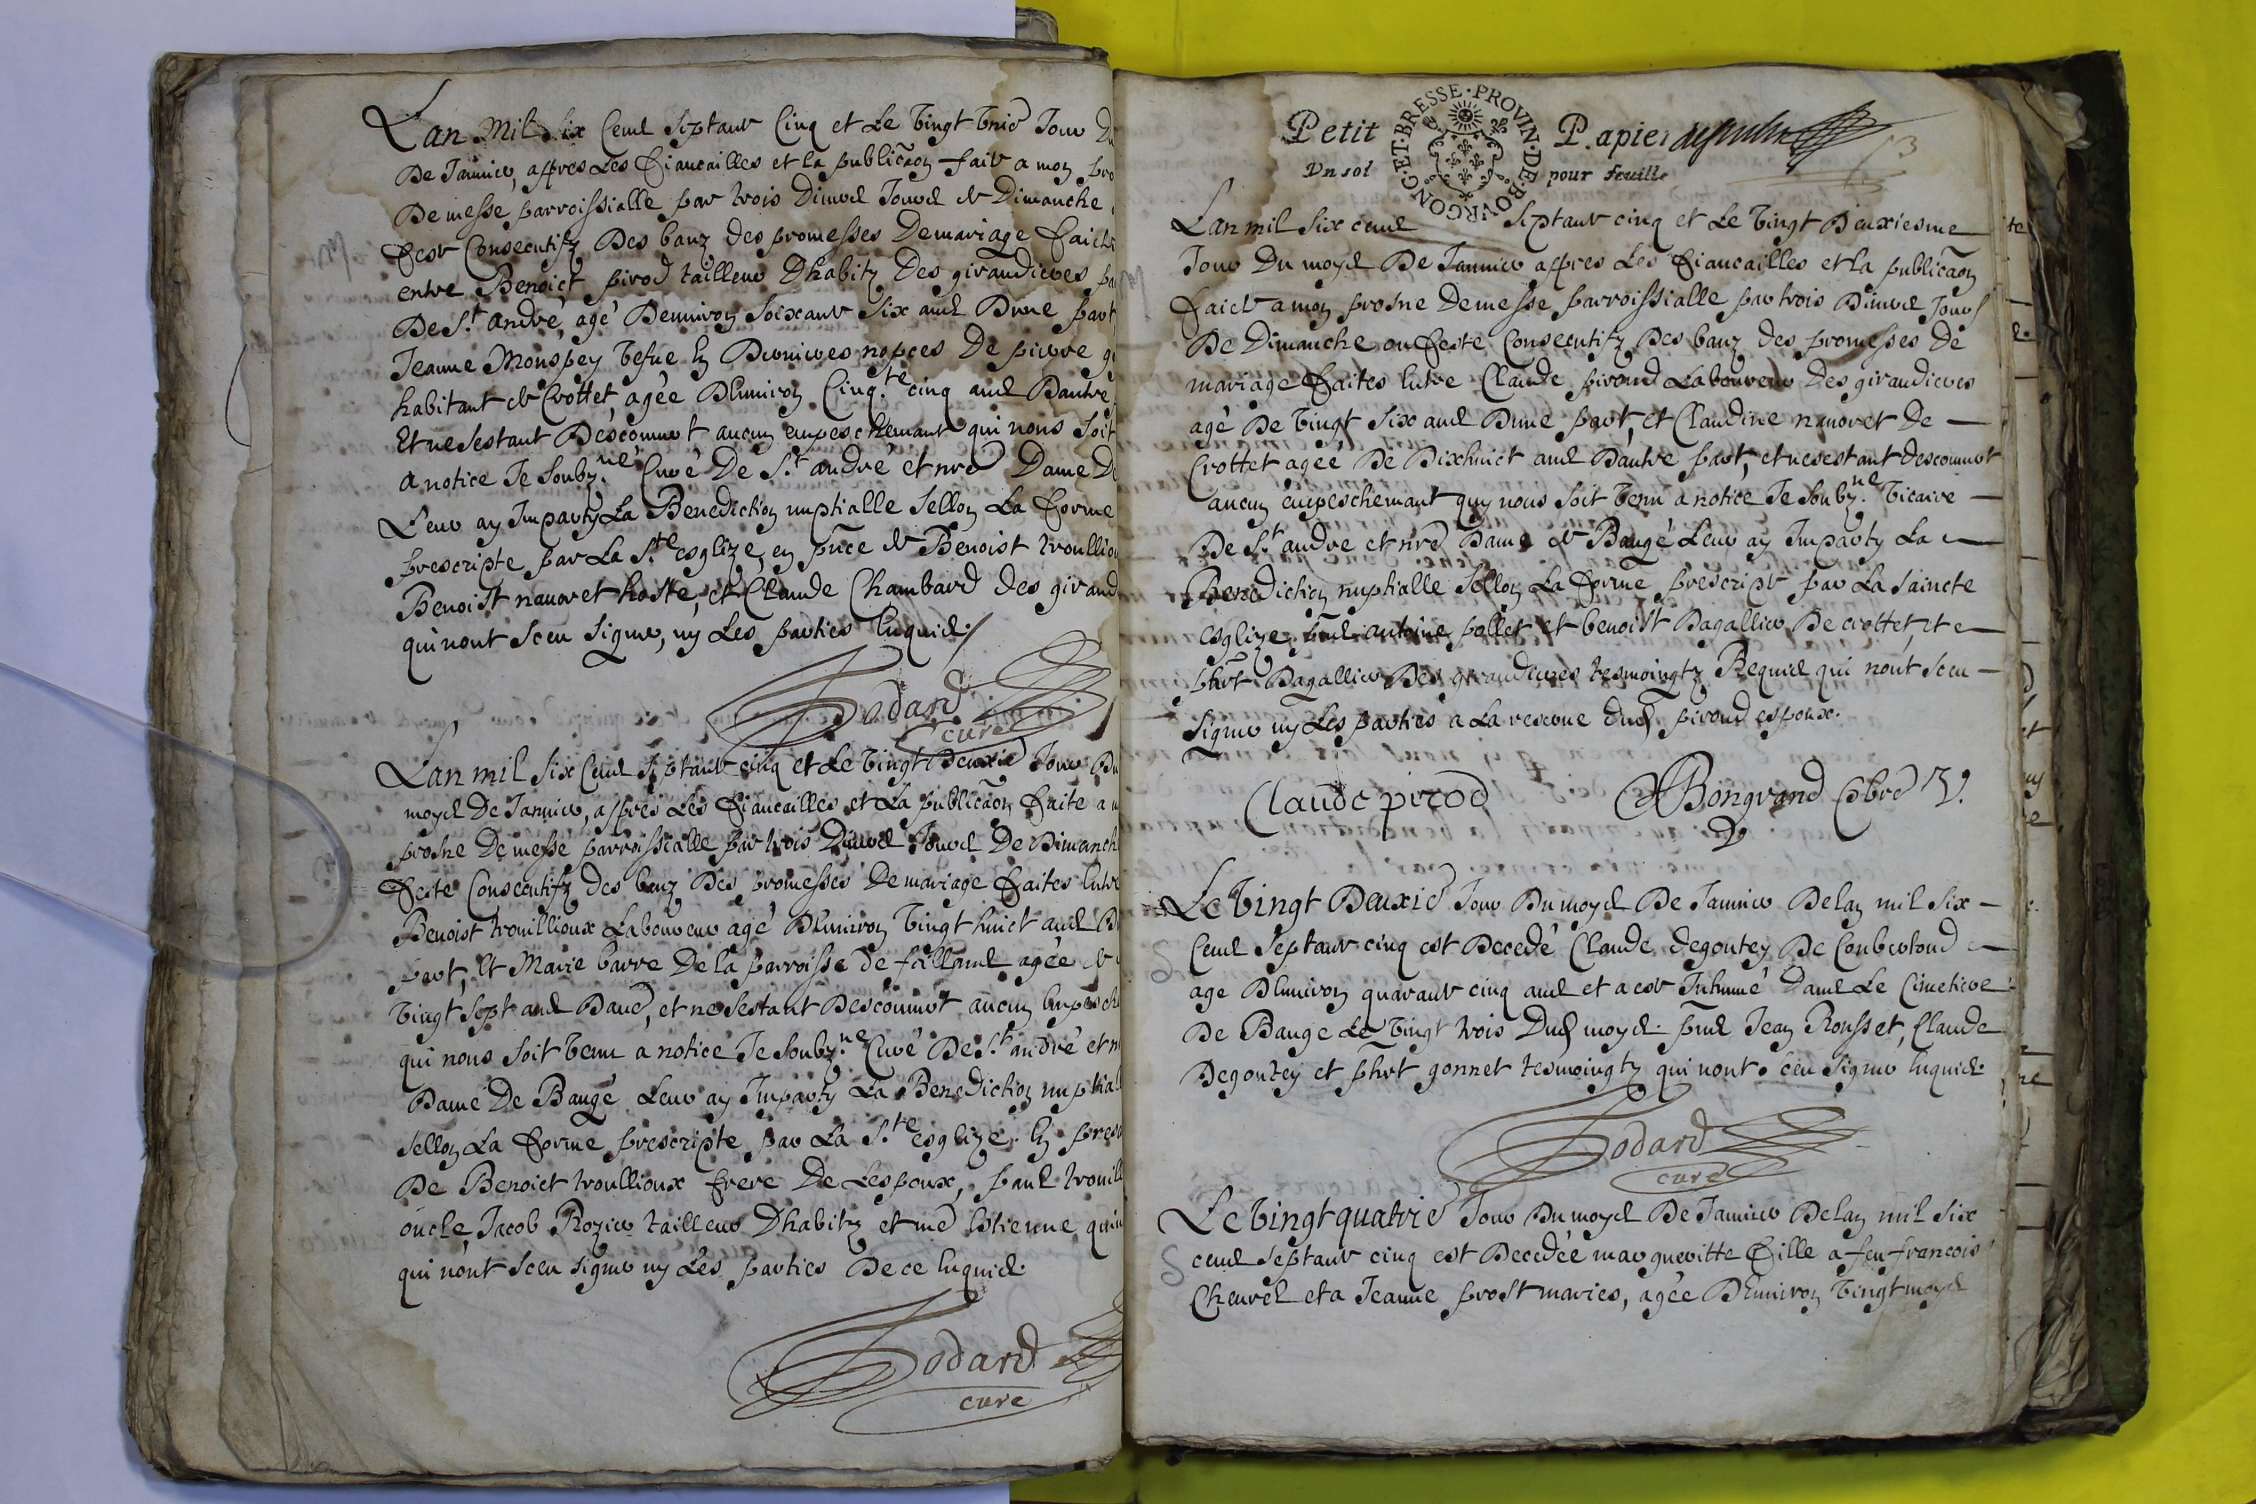 Lan Mil six Cent Septante Cinq et Le vingt unie Jour Du
De Janvier, appres Les fiancailles et la publicaon fait a mon pro
De messe parroissialle par trois Divers Jours de Dimanche
feste Consecutifz Des banz des promesses De mariage faicte
entre Benoict pirod tailleur Dhabitz Des giraudieres pa
De St André, agé Denviron Soixante Six ans Dune part
Jeanne Monspey vefve En Dernieres nopces De pierre
habitant de Crottet, agée Denviron Cinqte cinq ans Dautre
Et ne sestant Descouvert aucun empeschemant qui nous Soit
a notice Je Soubzne Curé De St andré et nre Dame De
Leur ay Imparty La Benediction nuptialle Sellon La forme
prescripte par La Ste esglize, en pnce de Benoist troullio
Benoist navoret hoste, et Claude Chambard des giraud
qui nont Sceu Signer, ny Les parties Enquis
Godard
curé
Lan mil Six Cent septante cinq et Le vingt Deuxie Jour Du
moys De Janvier, appres Les fiancailles et La publicaon faite a m
prosne De messe parroissialle par trois Divers Jours De Dimanch
feste Consecutifz des banz Des promesses De mariage faites Entre
Benoist trouillioux Laboureur agé Denviron vingt huict ans D
part, et Marie barre De la parroisse de fallans agée de
vingt Sept ans Daue, et ne Sestant Descouvert aucun Empesch
qui nous Soit venu a notice Je Soubzne Curé De St andré et n
Dame De Baugé Leur ay Imparty La Benediction nuptiall
Sellon La forme prescripte par La Ste esglize. En prese
De Benoict troullioux frere De Lespoux, paul trouill
oncle, Jacob Rozier tailleur Dhabitz et me Estienne
qui nont Sceu signer ny Les parties De ce Enquis
Godard
curé
Petit Papier
Vn sol pour feuille
BOVRGONG·ET·BRESSE·PROVIN·DE
13
Lan mil Six cent Septante cinq et Le vingt Deuxiesme
Jour Du moys De Janvier appres Les fiancailles et la publicaon
faict a mon prosne De messe parroissialle par trois Divers Jours
De Dimanche ou feste Consecutifz Des banz des promesses De
mariage faites Entre Claude piroud Laboureur Des giraudieres
agé De vingt Six ans Dune part, et Claudine navoret De
Crottet agée De Dixhuict ans Dautre part, et ne sestant descouvert
aucun empeschemant quy nous soit venu a notice Je Soubzne vicaire
De St andre et nre Dame de Baugé Leur ay Imparty La
Benediction nuptialle Sellon La forme prescript par La saincte
esglize. pnt antoine pollet et benoist Dagallier De crottet, et
phrt Dagallier Des giraudieres tesmoingtz Requis qui nont sceu
signer ny Les parties a La reserve dud piroud espoux.
Claude pirod
Bongrand pbre V.
Le vingt Deuxie Jour Du moys De Janvier De lan mil Six
Cent Septante cinq est Decedé Claude degoutey De Couberthoud
age Denviron quarante cinq ans et a este Inhumé Dans Le Cimetiere
De Bauge Le vingt trois Dud moys. pnt Jean Rousset, Claude
Degoutey et phrt gonnet tesmoingtz qui nont sceu Signer Enquis
Godard
curé
Le vingt quatrie Jour Du moys De Janvier De lan mil Six
cent Septante cinq est Decedée marguevitte fille a feu francois
Chevrel et a Jeanne prost maries, agée Denviron vingt moys